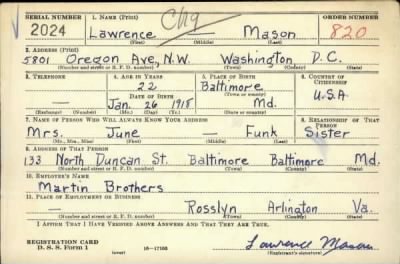 SERIAL NUMBER 1. NAME (Print) Chg ORDER NUMBER
2024 Lawrence — Mason 820
(First) (Middle) (Last)
2. ADDRESS (Print)
5801 Oregon Ave, N.W. Washington D.C.
(Number and street or R. F. D. number) (Town) (County) (State)
3. TELEPHONE 4. AGE IN YEARS 5. PLACE OF BIRTH 6. COUNTRY OF CITIZENSHIP
22 Baltimore
DATE OF BIRTH (Town or county)
— Jan. 26 1918 Md. U.S.A
(Exchange) (Number) (Mo.) (Day) (Yr.) (State or country)
7. NAME OF PERSON WHO WILL ALWAYS KNOW YOUR ADDRESS 8. RELATIONSHIP OF THAT PERSON
Mrs. June — Funk Sister
(Mr., Mrs., Miss) (First) (Middle) (Last)
9. ADDRESS OF THAT PERSON
133 North Duncan St. Baltimore Baltimore Md.
(Number and street or R. F. D. number) (Town) (County) (State)
10. EMPLOYER'S NAME
Martin Brothers
11. PLACE OF EMPLOYMENT OR BUSINESS
— Rosslyn Arlington Va.
(Number and street or R. F. D. number) (Town) (County) (State)
I AFFIRM THAT I HAVE VERIFIED ABOVE ANSWERS AND THAT THEY ARE TRUE.
REGISTRATION CARD
D. S. S. Form 1 (over) 16—17105 Lawrence Mason
(Registrant's signature)